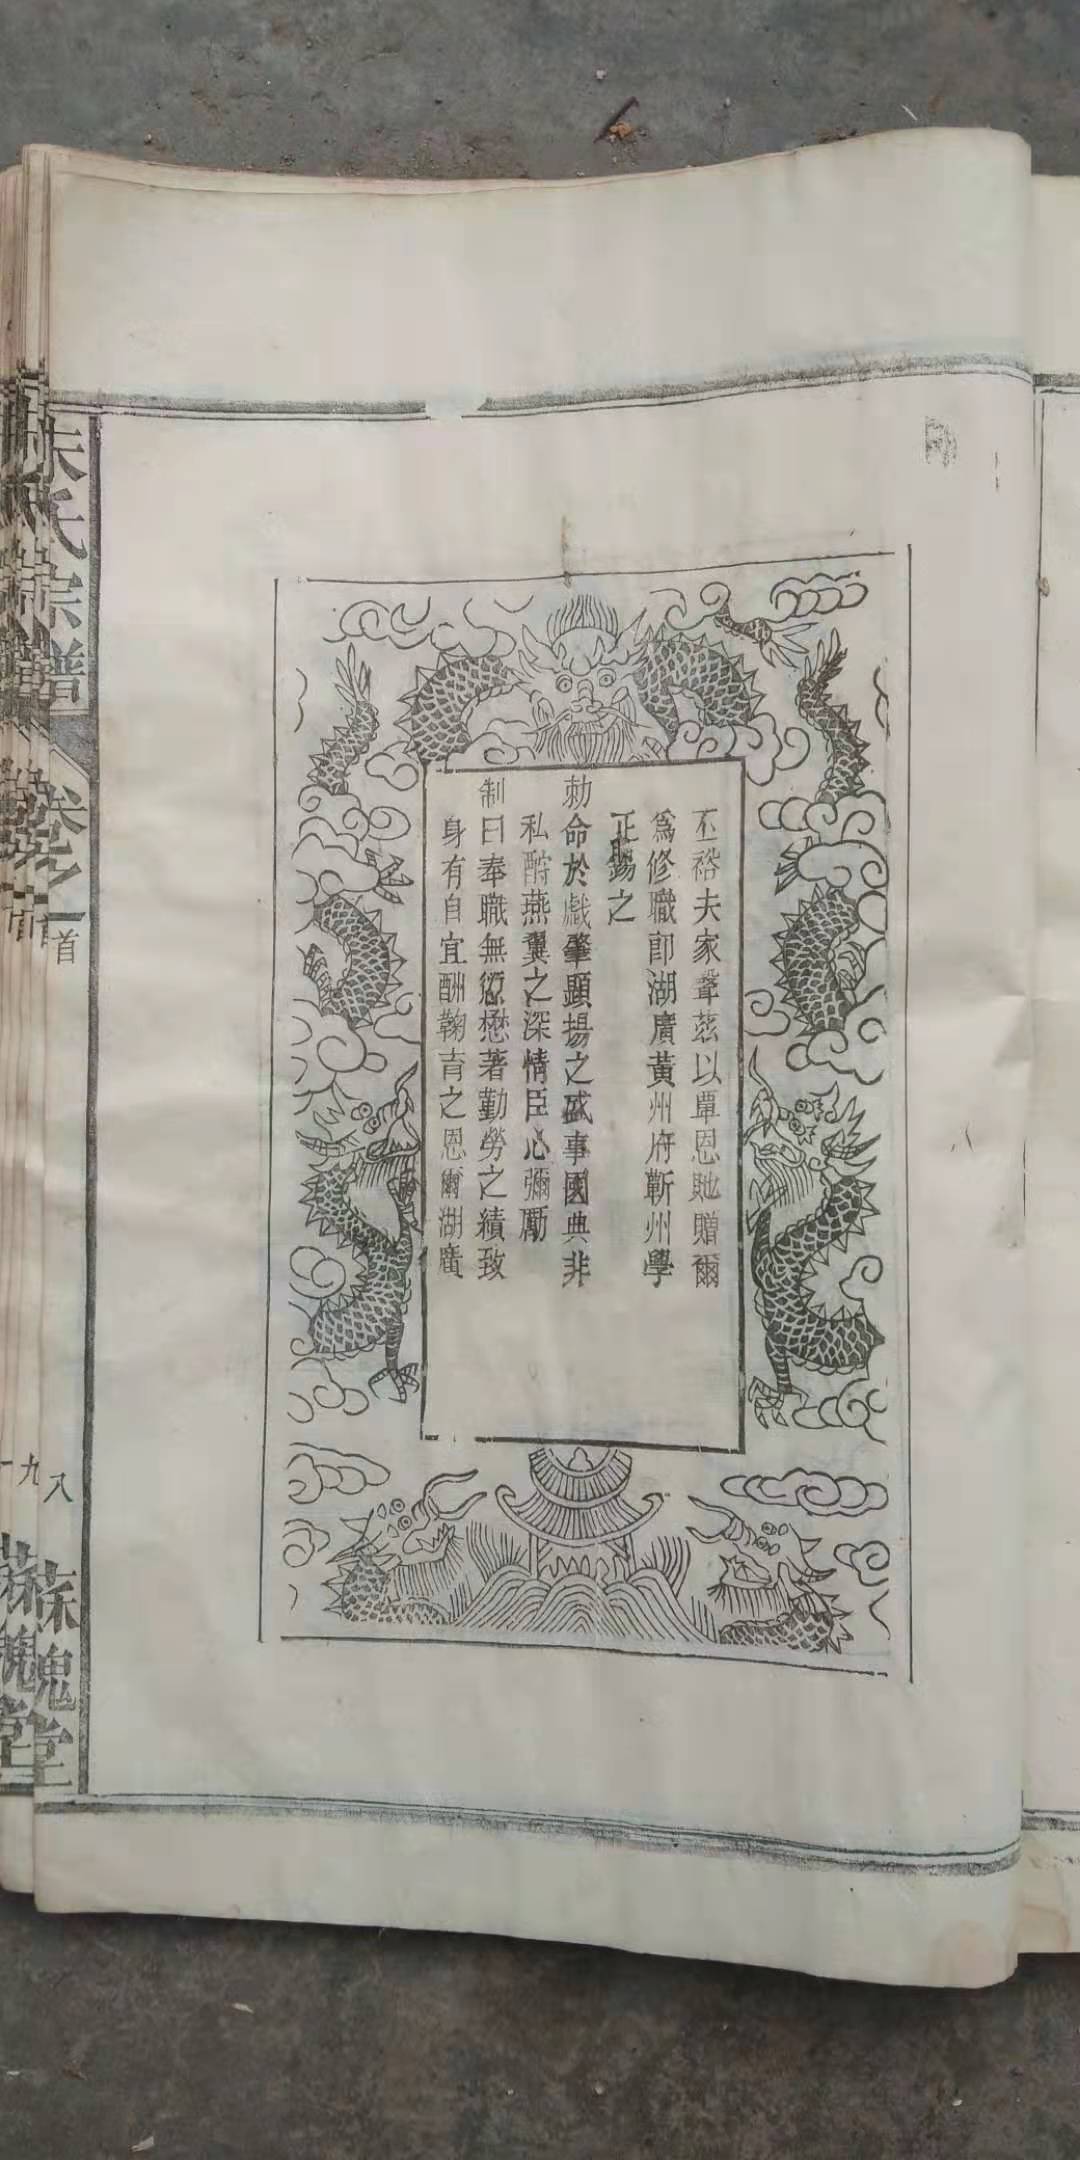 丕裕夫家聲茲以覃恩貤贈爾
爲修職郎湖廣黃州府蘄州學
正錫之
勅命於戲肇顯揚之盛事國典非
私酧燕翼之深情臣心彌勵
制曰奉職無愆懋著勤勞之績致
身有自宜酬鞠育之恩爾湖廣
朱氏宗譜
卷之一首
八
九
一
槐堂